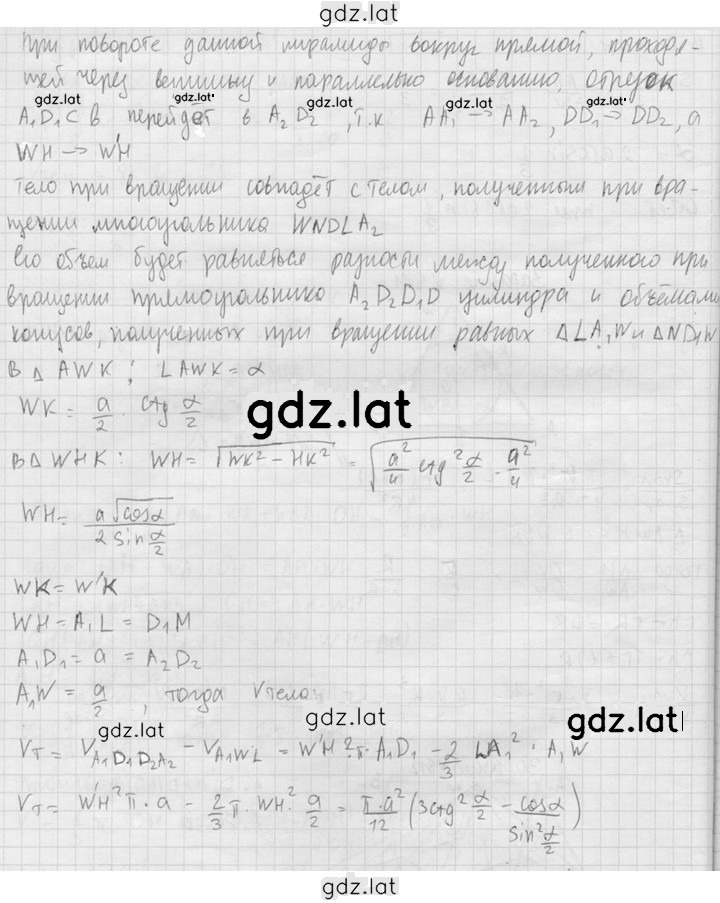 gdz.lat
При повороте данной пирамиды вокруг прямой, проходя-
щей через вершину и параллельно основанию, отрезок
gdz.lat gdz.lat gdz.lat
A₁D₁C в перейдёт в A₂D₂, т.к AA₁ → AA₂, DD₁ → DD₂, а
WH → W'H
тело при вращении совпадёт с телом, полученным при вра-
щении многоугольника WNDLA₂
Его объем будет равняться разности между полученного при
вращении прямоугольника A₂D₂D₁D цилиндра и объёмами
конусов, полученных при вращении равных ΔLA₁W и ΔND₁W
В Δ AWK: ∠AWK = α
WK = a/2 · ctg α/2
gdz.lat
ВΔ WHK: WH = √(WK² − HK²) = √(a²/4 ctg² α/2 − a²/4)
WH = a√cosα / 2 sin α/2
WK = W'K
WH = A₁L = D₁M
A₁D₁ = a = A₂D₂
A₁W = a/2, тогда Vтела:
gdz.lat gdz.lat gdz.lat
Vт = V A₁D₁D₂A₂ − V A₁W'L = W'H²·π·A₁D₁ − 2/3 LA₁² · A₁W
Vт = W'H²π·a − 2/3 π·WH²·a/2 = π·a²/12 (3ctg² α/2 − cosα/sin² α/2)
gdz.lat